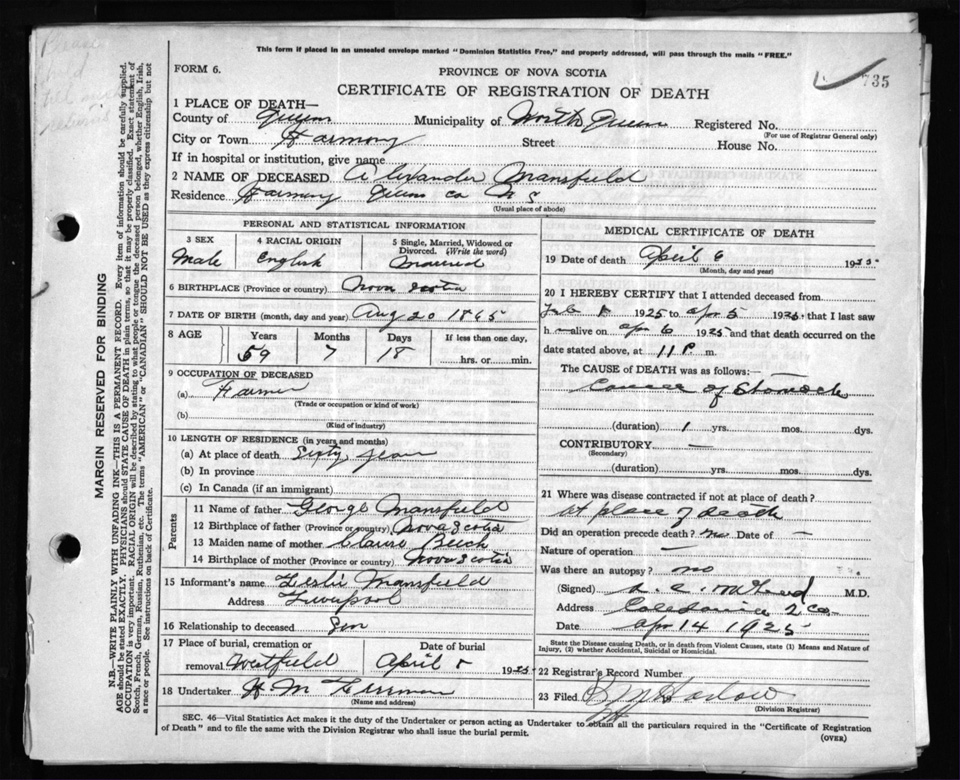 This form if placed in an unsealed envelope marked "Dominion Statistics Free," and properly addressed, will pass through the mails "FREE."
FORM 6.
PROVINCE OF NOVA SCOTIA
735
CERTIFICATE OF REGISTRATION OF DEATH
1 PLACE OF DEATH—
County of Queens Municipality of North Queens Registered No.
(For use of Registrar General only)
City or Town Harmony Street House No.
If in hospital or institution, give name
2 NAME OF DECEASED Alexander Mansfield
Residence Harmony Queens Co N S
(Usual place of abode)
PERSONAL AND STATISTICAL INFORMATION
3 SEX 4 RACIAL ORIGIN 5 Single, Married, Widowed or Divorced. (Write the word)
Male English Married
6 BIRTHPLACE (Province or country) Nova Scotia
7 DATE OF BIRTH (month, day and year) Aug 20 1865
8 AGE Years Months Days If less than one day,
59 7 18 hrs. or min.
9 OCCUPATION OF DECEASED
(a) Farmer
(Trade or occupation or kind of work)
(b)
(Kind of industry)
10 LENGTH OF RESIDENCE (in years and months)
(a) At place of death Sixty years
(b) In province
(c) In Canada (if an immigrant)
Parents
11 Name of father George Mansfield
12 Birthplace of father (Province or country) Nova Scotia
13 Maiden name of mother Beech
14 Birthplace of mother (Province or country) Nova Scotia
15 Informant's name Leslie Mansfield
Address Liverpool
16 Relationship to deceased Son
17 Place of burial, cremation or removal Date of burial
Westfield April 1925
18 Undertaker H M
(Name and address)
MEDICAL CERTIFICATE OF DEATH
19 Date of death April 6 1925
(Month, day and year)
20 I HEREBY CERTIFY that I attended deceased from
Feb 1 1925 to apr 5 1925 that I last saw
h alive on apr 6 1925 and that death occurred on the
date stated above, at 11 P. m.
The CAUSE of DEATH was as follows:—
Cancer of Stomach
(duration) 1 yrs. mos. dys.
CONTRIBUTORY —
(Secondary)
(duration) yrs. mos. dys.
21 Where was disease contracted if not at place of death?
at place of death
Did an operation precede death? no Date of —
Nature of operation —
Was there an autopsy? no
(Signed) M.D.
Address Caledonia Q Co
Date Apr 14 1925
State the Disease causing Death, or in death from Violent Causes, state (1) Means and Nature of Injury, (2) whether Accidental, Suicidal or Homicidal.
22 Registrar's Record Number
23 Filed Harlow
(Division Registrar)
SEC. 46—Vital Statistics Act makes it the duty of the Undertaker or person acting as Undertaker to obtain all the particulars required in the "Certificate of Registration of Death" and to file the same with the Division Registrar who shall issue the burial permit.
(OVER)
MARGIN RESERVED FOR BINDING
N.B.—WRITE PLAINLY WITH UNFADING INK—THIS IS A PERMANENT RECORD. Every item of information should be carefully supplied.
AGE should be stated EXACTLY. PHYSICIANS should STATE CAUSE OF DEATH in plain terms, so that it may be properly classified. Exact statement of
OCCUPATION is very important. RACIAL ORIGIN will be described by stating to what people or tongue the deceased person belonged, whether English, Irish,
Scotch, French, German, Russian, Ruthenian, etc. The terms "AMERICAN" or "CANADIAN" SHOULD NOT BE USED as they express citizenship but not
a race or people. See instructions on back of Certificate.